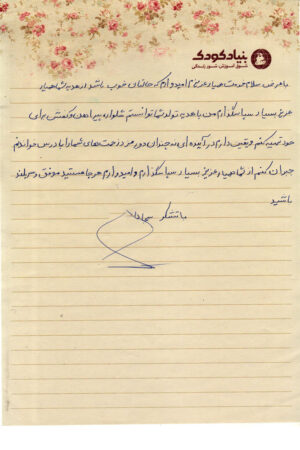 بنیاد کودک
شوق آموزش، شور زندگی
با عرض سلام خدمت همیار عزیزم امیدوارم که حالتان خوب باشد از هدیه شما همیار
عزیز بسیار سپاسگذارم من با هدیه تولد شما توانستم شلوار، پیراهن و کفش برای
خود تهیه کنم و قصد دارم در آینده ای نه چندان دور من زحمت های شما را با درس خواندنم
جبران کنم از شما همیار عزیز بسیار سپاسگذارم و امیدوارم هر جا هستید موفق و سربلند
باشید
با تشکر